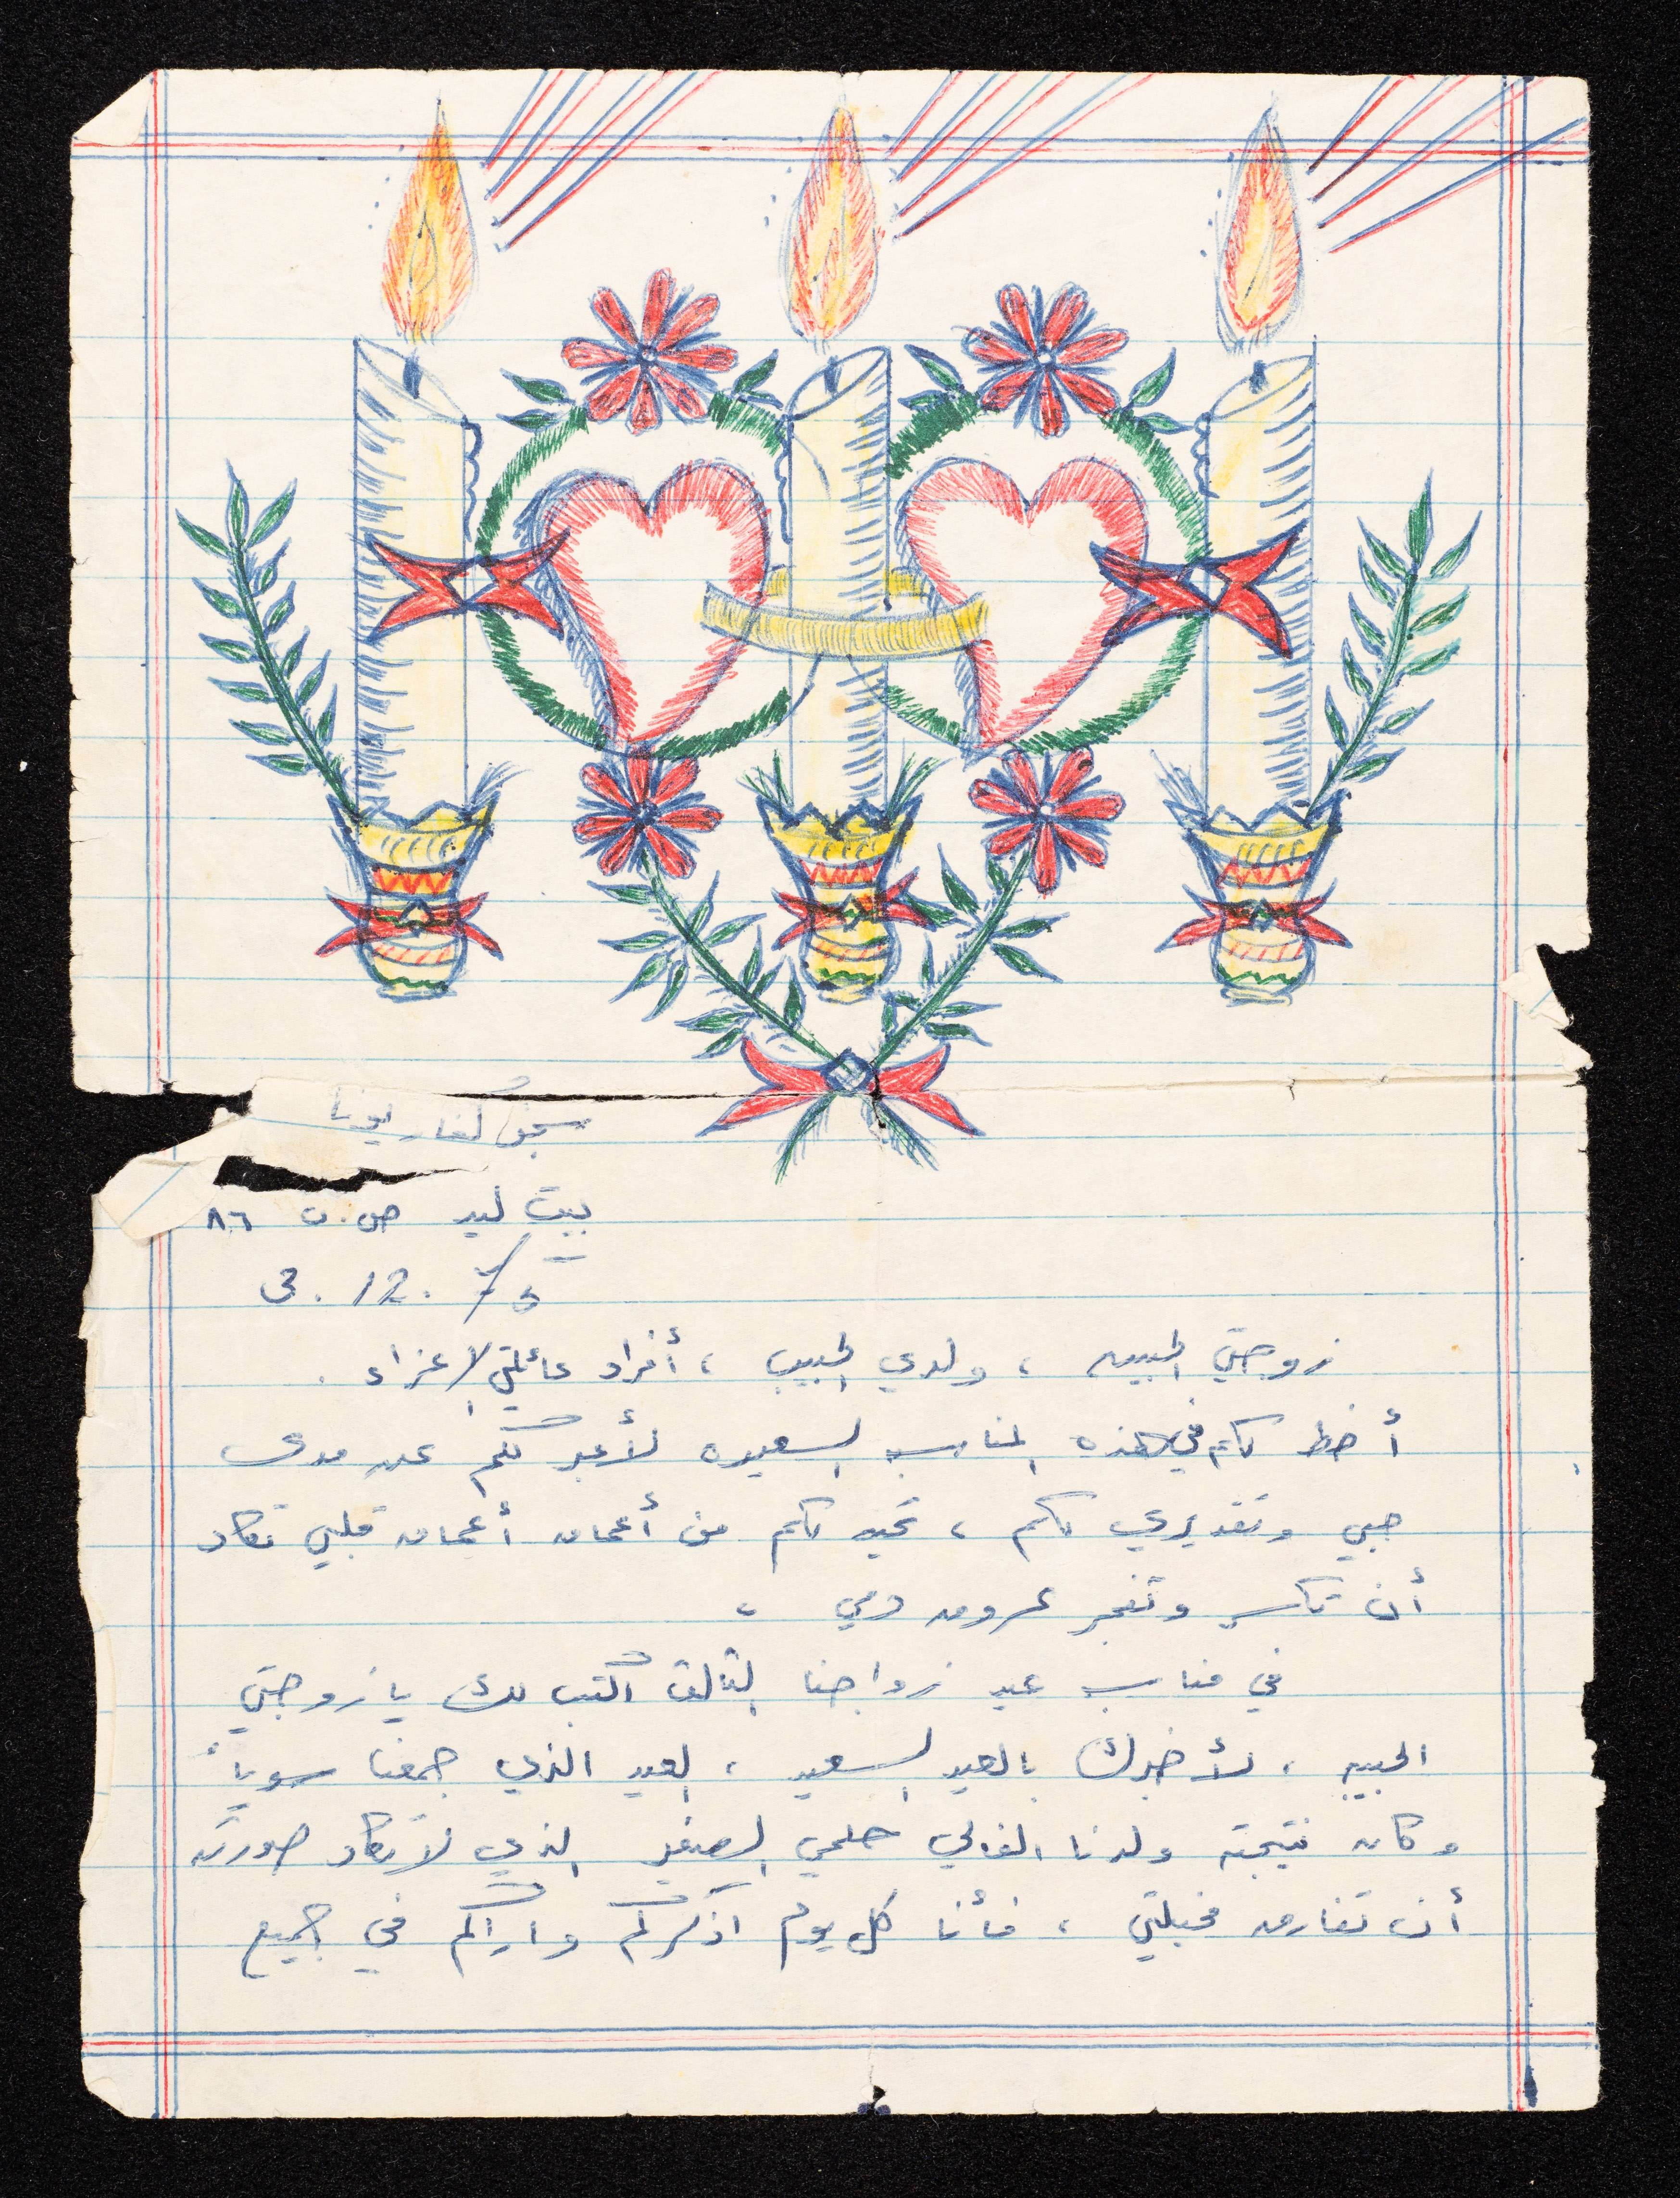 سجن كفار يونا
بيت ليد ص.ب ٨٦
3.12.75
زوجتي الحبيبه ، ولدي الحبيب ، أفراد عائلتي الاعزاء .
أخط لكم في هذه المناسبه السعيده لأعبر لكم عن مدى
حبي وتقديري لكم ، تحيه لكم من أعماق أعماق قلبي تكاد
أن تكسر وتفجر عروق دمي ،
في مناسبه عيد زواجنا الثالث اكتب لك يا زوجتي
الحبيبه ، لأخبرك بالعيد السعيد ، العيد الذي جمعنا سوياً
وكان نتيجته ولدنا الغالي حلمي الصغير الذي لا تكاد صورته
أن تفارق مخيلتي ، فأنا كل يوم اذكركم واراكم في جميع